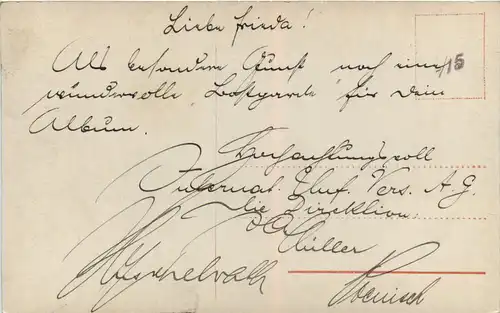 Liebe Frieda!
Als besondere Gunst noch eine
wundervolle Postkarte für Dein
Album.
Hochachtungsvoll
Internat. Vers. A. G.
Die Direktion.
Müller